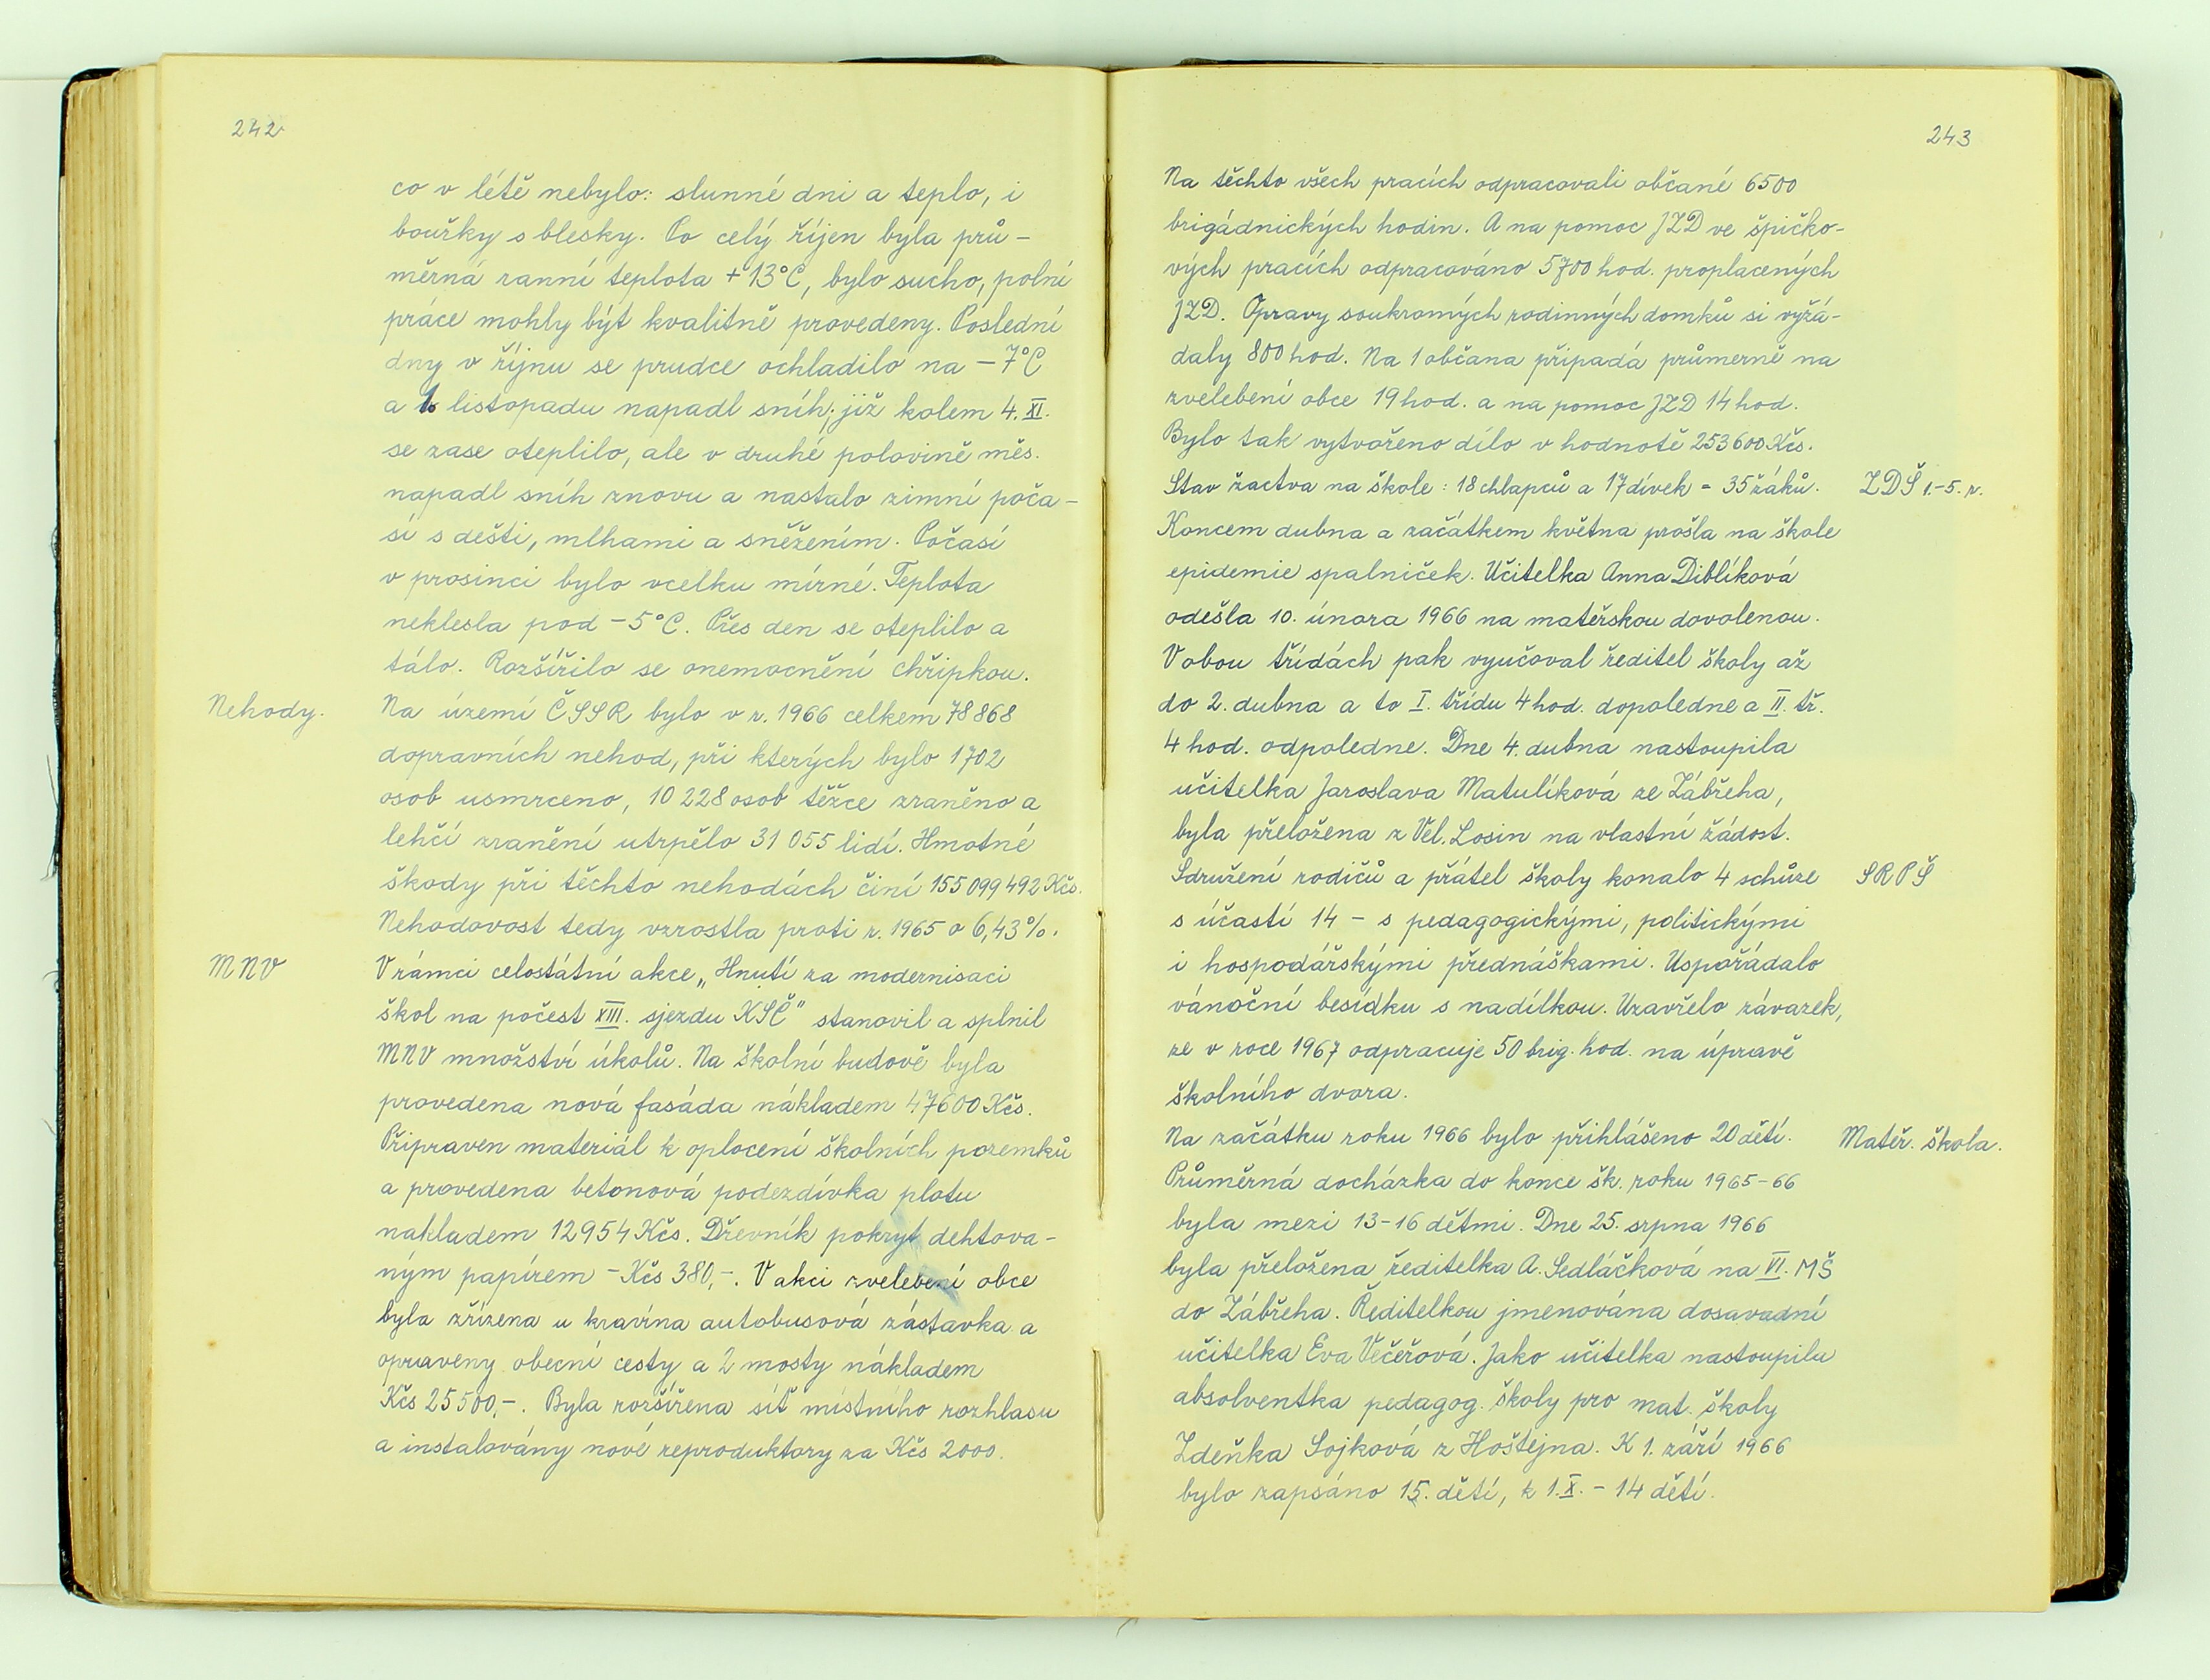 242
co v létě nebylo: slunné dni a teplo, i
bouřky s blesky. Po celý říjen byla prů-
měrná ranní teplota +13°C, bylo sucho, polní
práce mohly být kvalitně provedeny. Poslední
dny v říjnu se prudce ochladilo na -7°C
a 1. listopadu napadl sníh; již kolem 4. XI.
se zase oteplilo, ale v druhé polovině měs.
napadl sníh znovu a nastalo zimní poča-
sí s dešti, mlhami a sněžením. Počasí
v prosinci bylo vcelku mírné. Teplota
neklesla pod -5°C. Přes den se oteplilo a
tálo. Rozšířilo se onemocnění chřipkou.
Nehody.
Na území ČSSR bylo v r. 1966 celkem 78 868
dopravních nehod, při kterých bylo 1702
osob usmrceno, 10 228 osob těžce zraněno a
lehčí zranění utrpělo 31 055 lidí. Hmotné
škody při těchto nehodách činí 155 099 492 Kčs.
Nehodovost tedy vzrostla proti r. 1965 o 6,43%.
MNV
V rámci celostátní akce „Hnutí za modernisaci
škol na počest XIII. sjezdu KSČ" stanovil a splnil
MNV množství úkolů. Na školní budově byla
provedena nová fasáda nákladem 47600 Kčs.
Připraven materiál k oplocení školních pozemků
a provedena betonová podezdívka plotu
nákladem 12954 Kčs. Dřevník pokryt dehtova-
ným papírem - Kčs 380,-. V akci zvelebení obce
byla zřízena u kravína autobusová zástavka a
opraveny obecní cesty a 2 mosty nákladem
Kčs 25500,-. Byla rozšířena síť místního rozhlasu
a instalovány nové reproduktory za Kčs 2000.
243
Na těchto všech pracích odpracovali občané 6500
brigádnických hodin. A na pomoc JZD ve špičko-
vých pracích odpracováno 5700 hod. proplacených
JZD. Opravy soukromých rodinných domků si vyžá-
daly 800 hod. Na 1 občana připadá průmerně na
zvelebení obce 19 hod. a na pomoc JZD 14 hod.
Bylo tak vytvořeno dílo v hodnotě 253600 Kčs.
Stav žactva na škole: 18 chlapců a 17 dívek = 35 žáků.
ZDŠ 1.-5. r.
Koncem dubna a začátkem května prošla na škole
epidemie spalniček. Učitelka Anna Diblíková
odešla 10. února 1966 na mateřskou dovolenou.
V obou třídách pak vyučoval ředitel školy až
do 2. dubna a to I. třídu 4 hod. dopoledne a II. tř.
4 hod. odpoledne. Dne 4. dubna nastoupila
učitelka Jaroslava Matulíková ze Zábřeha,
byla přeložena z Vel. Losin na vlastní žádost.
Sdružení rodičů a přátel školy konalo 4 schůze
SRPŠ
s účastí 14 - s pedagogickými, politickými
i hospodářskými přednáškami. Uspořádalo
vánoční besídku s nadílkou. Uzavřelo závazek,
že v roce 1967 odpracuje 50 brig. hod. na úpravě
školního dvora.
Na začátku roku 1966 bylo přihlášeno 20 dětí.
Mateř. škola.
Průměrná docházka do konce šk. roku 1965-66
byla mezi 13-16 dětmi. Dne 25. srpna 1966
byla přeložena ředitelka A. Sedláčková na VI. MŠ
do Zábřeha. Ředitelkou jmenována dosavadní
učitelka Eva Večeřová. Jako učitelka nastoupila
absolventka pedagog. školy pro mat. školy
Zdeňka Sojková z Hoštejna. K 1. září 1966
bylo zapsáno 15. dětí, k 1. X. - 14 dětí.